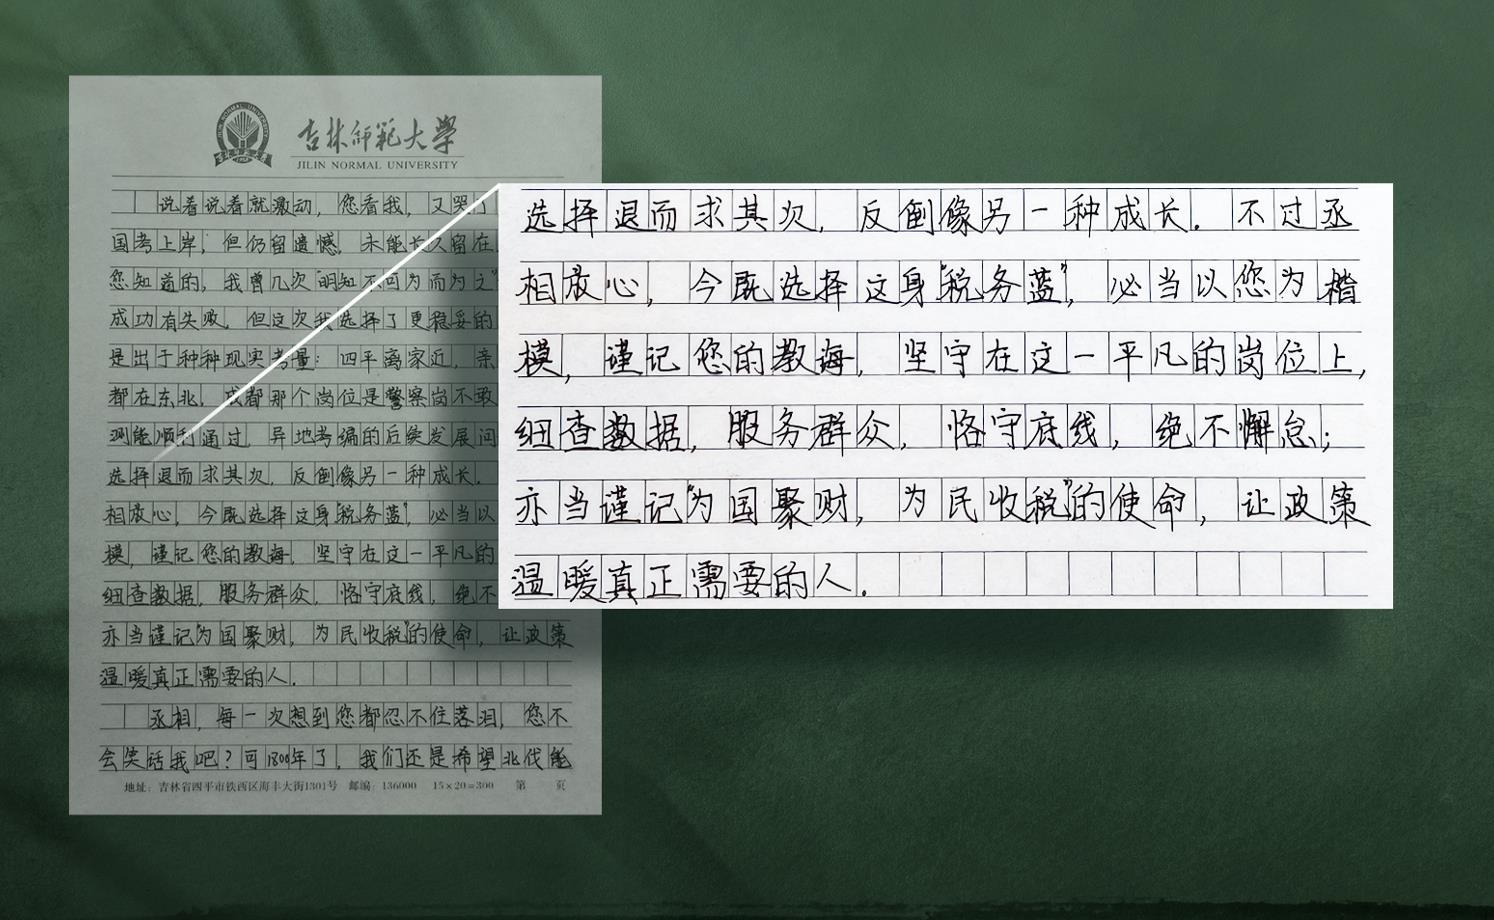 吉林师范大学
JILIN NORMAL UNIVERSITY
说着说着就激动，您看我，又哭了
国考上岸，但仍留遗憾，未能长久留在
您知道的，我曾几次“明知不可为而为之”
成功有失败，但这次我选择了更稳妥的
是出于种种现实考量：四平离家近，亲
都在东北，成都那个岗位是警察岗不敢
测能顺利通过，异地考编的后续发展问
选择退而求其次，反倒像另一种成长．
相放心，今既选择这身“税务蓝”，必当以
模，谨记您的教诲，坚守在这一平凡的
细查数据，服务群众，恪守底线，绝不
亦当谨记“为国聚财，为民收税”的使命，让政策
温暖真正需要的人．
丞相，每一次想到您都忍不住落泪，您不
会笑话我吧？可1800年了，我们还是希望北伐能
地址：吉林省四平市铁西区海丰大街1301号 邮编：136000 15×20=300 第 页
选择退而求其次，反倒像另一种成长．不过丞
相放心，今既选择这身“税务蓝”，必当以您为楷
模，谨记您的教诲，坚守在这一平凡的岗位上，
细查数据，服务群众，恪守底线，绝不懈怠；
亦当谨记“为国聚财，为民收税”的使命，让政策
温暖真正需要的人．